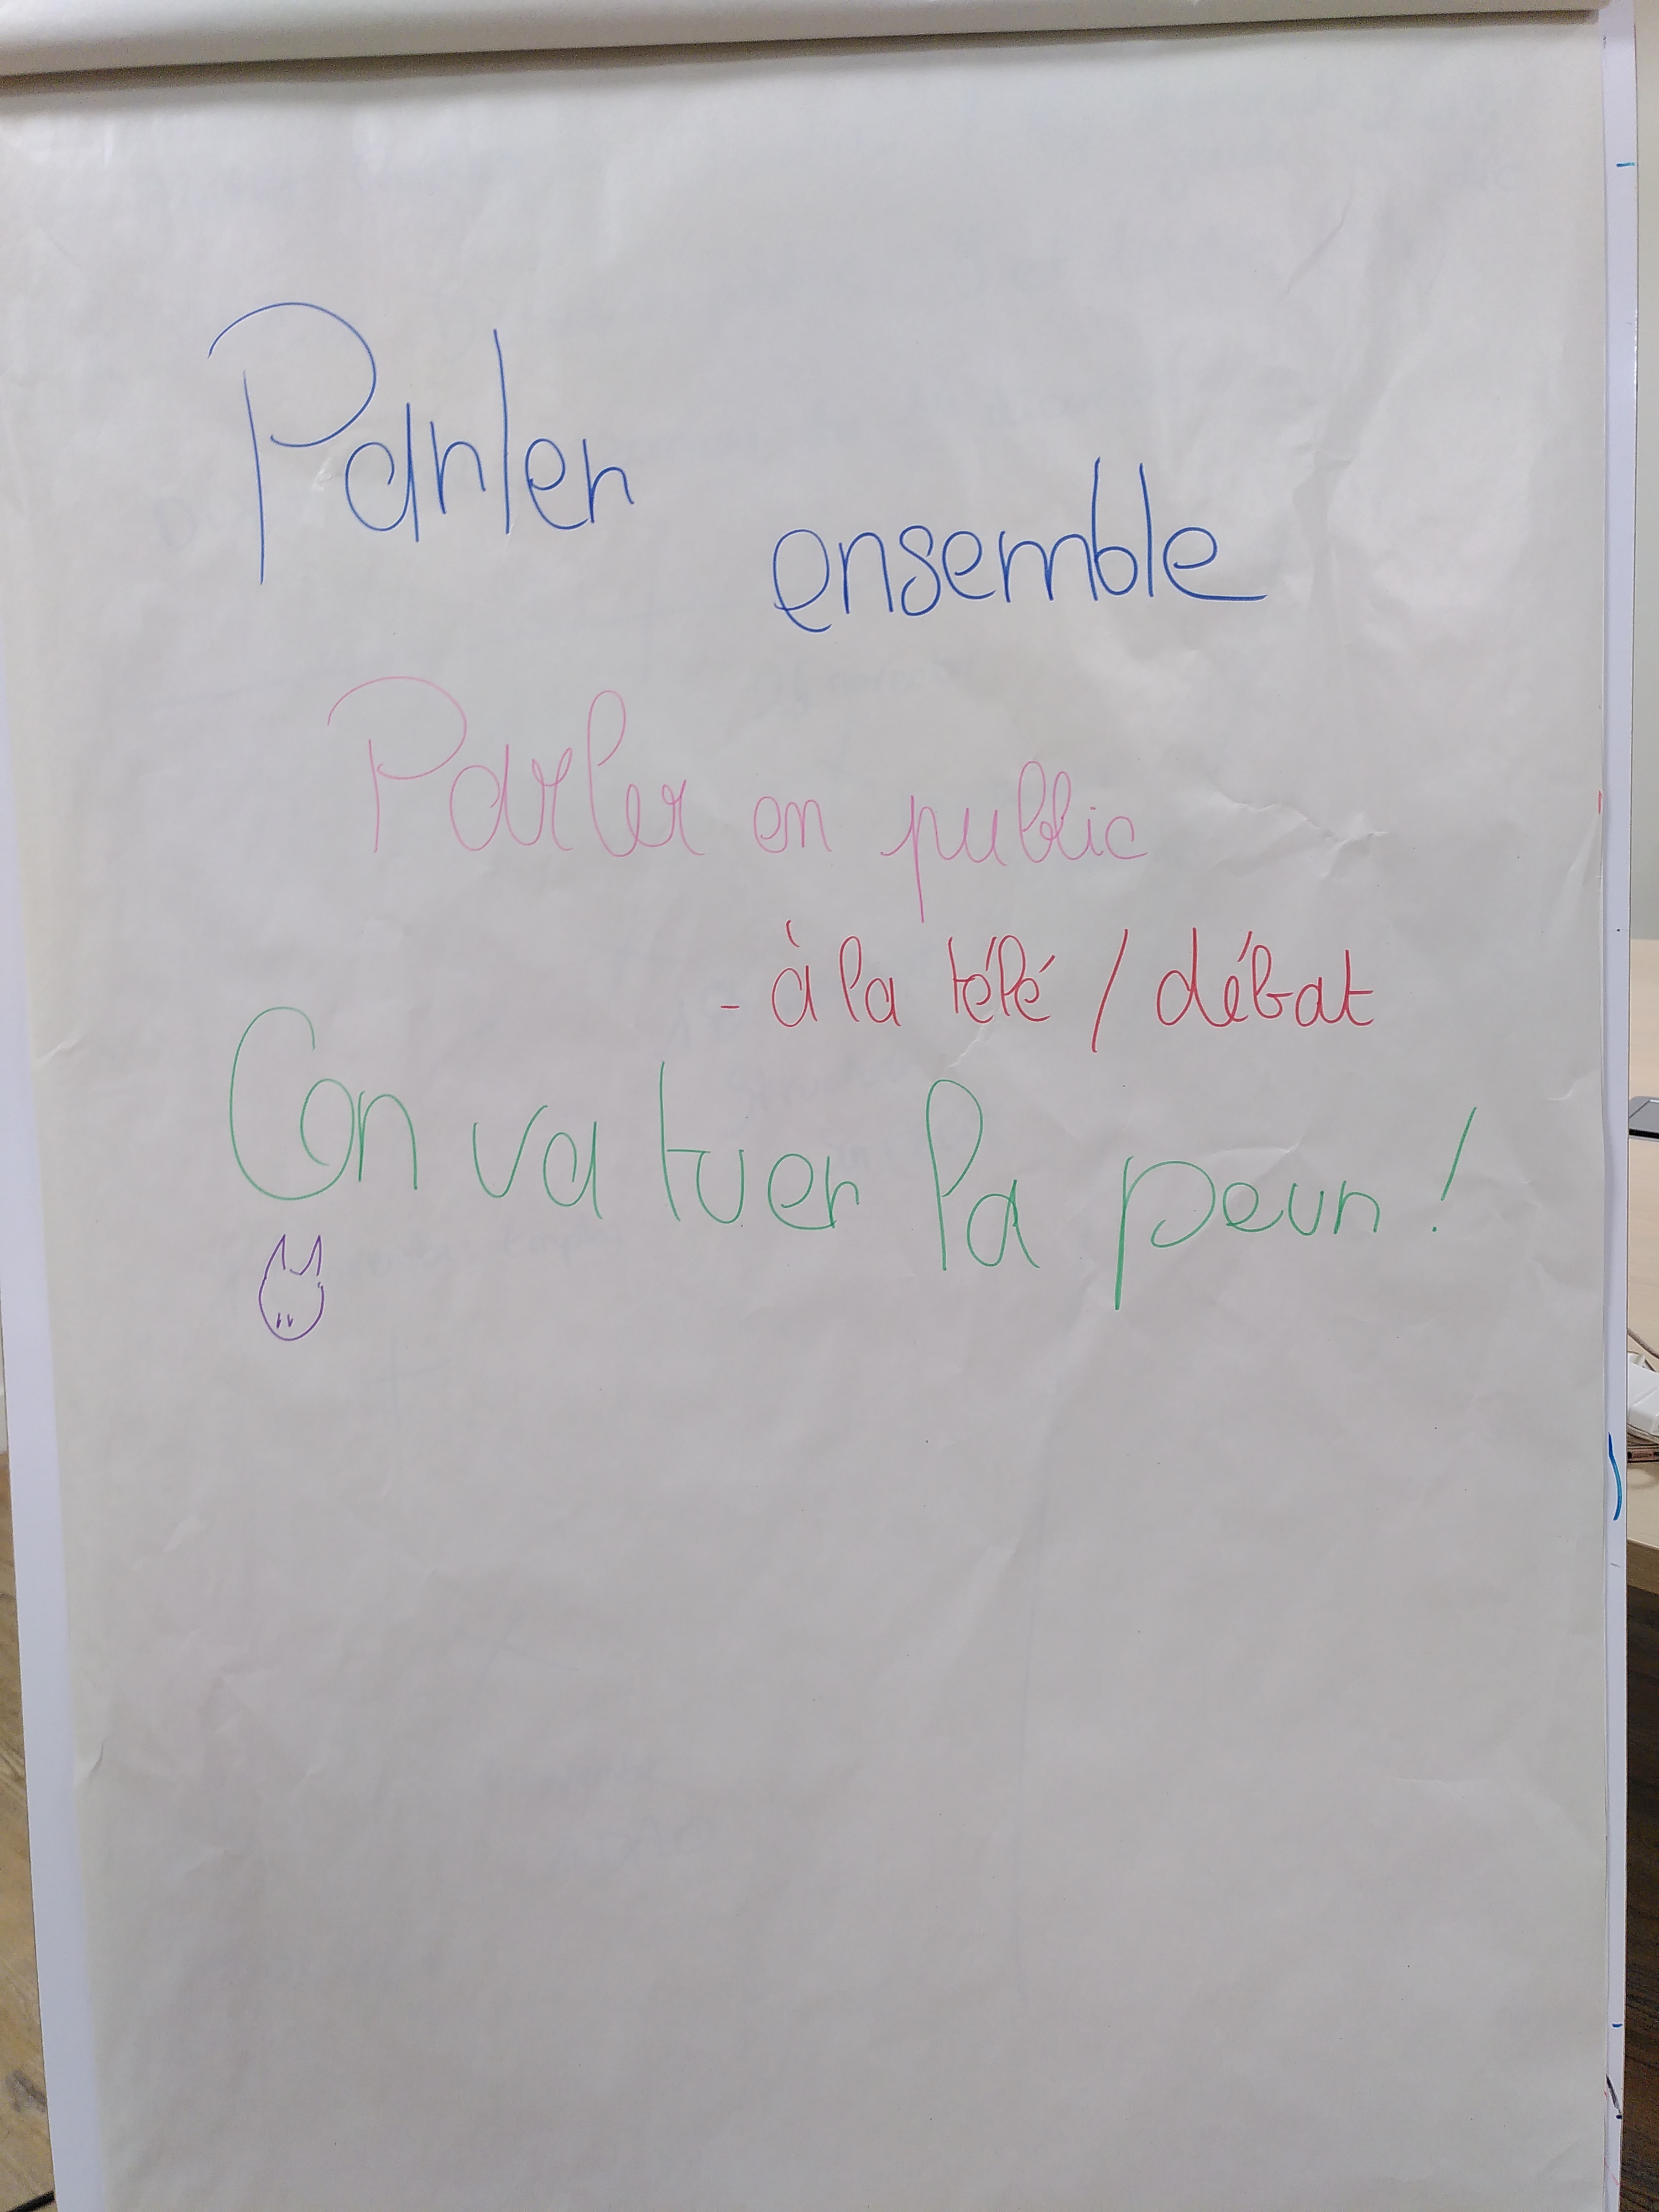 Parler
ensemble
Parler en public
- à la télé / débat
On va tuer la peur !